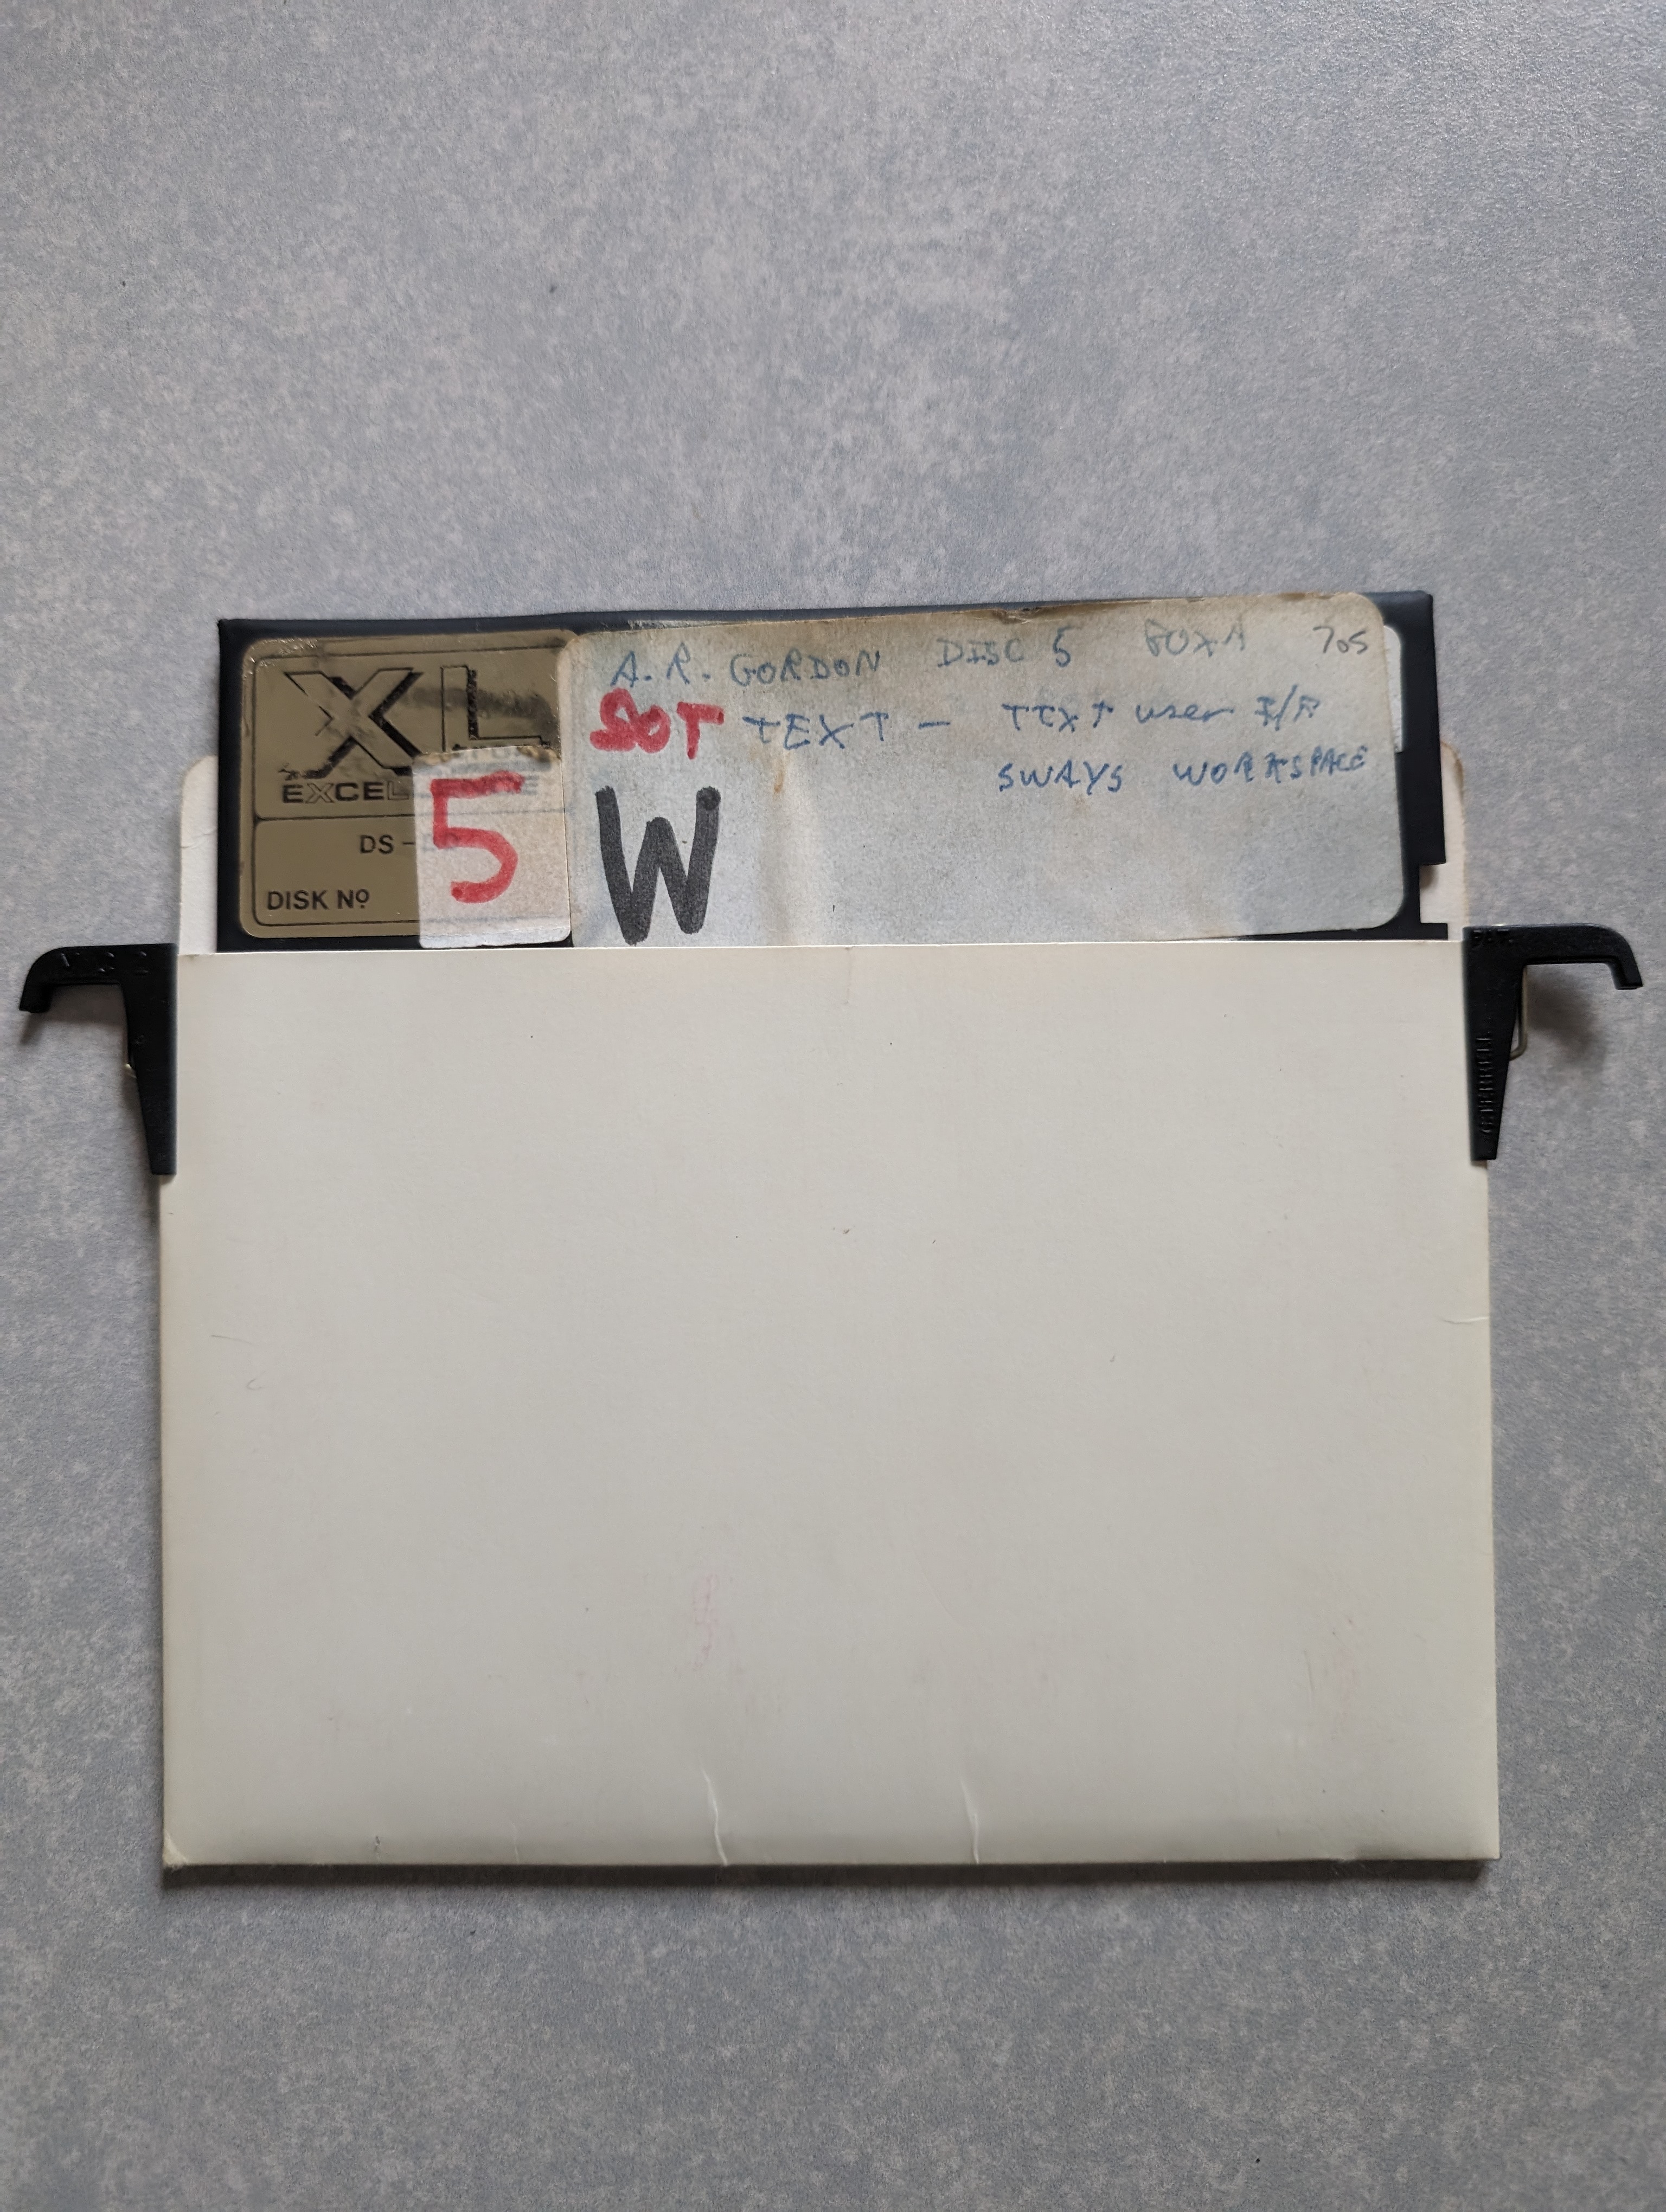 XL
EXCEL
DS -
DISK Nº
5
A.R. GORDON DISC 5 BOXA 705
SOT TEXT - TEXT user I/F
SWAYS WORKSPACE
W